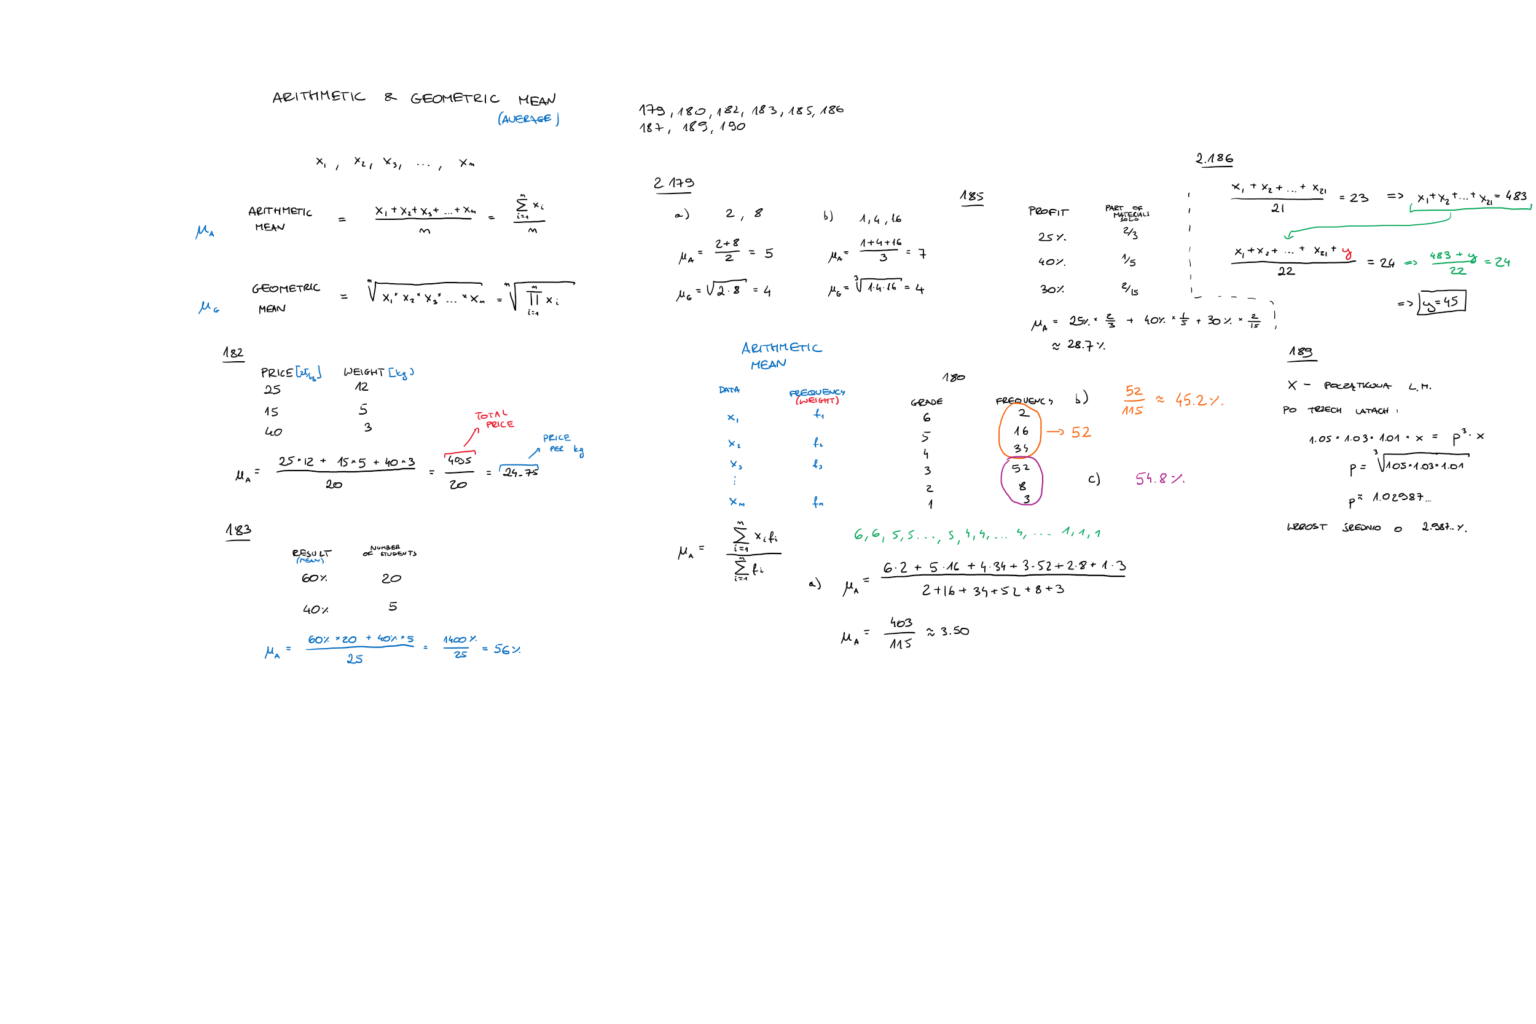 ARITHMETIC & GEOMETRIC MEAN
(AVERAGE)
x₁, x₂, x₃, ..., xₙ
μ_A ARITHMETIC MEAN = (x₁+x₂+x₃+...+xₙ)/n = (∑_{i=1}^{n} xᵢ)/n
μ_G GEOMETRIC MEAN = ⁿ√(x₁·x₂·x₃·...·xₙ) = ⁿ√(∏_{i=1}^{n} xᵢ)
182
PRICE [zł/kg] WEIGHT [kg]
25 12
15 5
40 3
μ_A = (25·12 + 15·5 + 40·3)/20 = 495/20 = 24.75
TOTAL PRICE
PRICE PER kg
183
RESULT (MEAN) NUMBER OF STUDENTS
60% 20
40% 5
μ_A = (60%·20 + 40%·5)/25 = 1400%/25 = 56%
179, 180, 182, 183, 185, 186
187, 189, 190
2.179
a) 2, 8
μ_A = (2+8)/2 = 5
μ_G = √(2·8) = 4
b) 1, 4, 16
μ_A = (1+4+16)/3 = 7
μ_G = ³√(1·4·16) = 4
185
PROFIT PART OF MATERIALS SOLD
25% 2/3
40% 1/5
30% 2/15
μ_A = 25% · 2/3 + 40% · 1/5 + 30% · 2/15
≈ 28.7%
2.186
(x₁+x₂+...+x₂₁)/21 = 23 => x₁+x₂+...+x₂₁ = 483
(x₁+x₂+...+x₂₁+y)/22 = 24 => (483+y)/22 = 24
=> y=45
ARITHMETIC MEAN
DATA FREQUENCY (WEIGHT)
x₁ f₁
x₂ f₂
x₃ f₃
⋮
xₙ fₙ
μ_A = (∑_{i=1}^{n} xᵢfᵢ)/(∑_{i=1}^{n} fᵢ)
180
GRADE FREQUENCY
6 2
5 16
4 34
3 52
2 8
1 3
→ 52
b) 52/115 ≈ 45.2%
c) 54.8%
6,6,5,5...,5,4,4,...4,... 1,1,1
a) μ_A = (6·2 + 5·16 + 4·34 + 3·52 + 2·8 + 1·3)/(2+16+34+52+8+3)
μ_A = 403/115 ≈ 3.50
189
X – POCZĄTKOWA L.M.
PO TRZECH LATACH:
1.05·1.03·1.01·x = p³·x
p = ³√(1.05·1.03·1.01)
p = 1.02987...
WZROST ŚREDNIO O 2.987..%